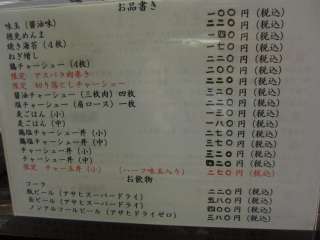 お品書き
味玉（醤油味） 一〇〇円（税込）
穂先めんま 二二〇円（税込）
焼き海苔（４枚） 一四〇円（税込）
ねぎ増し 一六〇円（税込）
鶏チャーシュー（４枚） 円（税込）
限定 アスパラ肉巻き 円（税込）
限定 切り落としチャーシュー 円（税込）
醤油チャーシュー（三枚肉）四枚 円（税込）
塩チャーシュー（肩ロース）一枚 円（税込）
麦ごはん（小） 円（税込）
麦ごはん（中） 円（税込）
鶏塩チャーシュー丼（小） 円（税込）
鶏塩チャーシュー丼（中） 円（税込）
チャーシュー丼（小） 三二〇円（税込）
チャーシュー丼（中） 四二〇円（税込）
限定 チャー玉丼（小）（ハーフ味玉入り） 二七〇円（税込）
お飲物
コーラ 二二〇円（税込）
瓶ビール（アサヒスーパードライ） 五八〇円（税込）
缶ビール（アサヒスーパードライ） 三五〇円（税込）
ノンアルコールビール（アサヒドライゼロ） 三八〇円（税込）